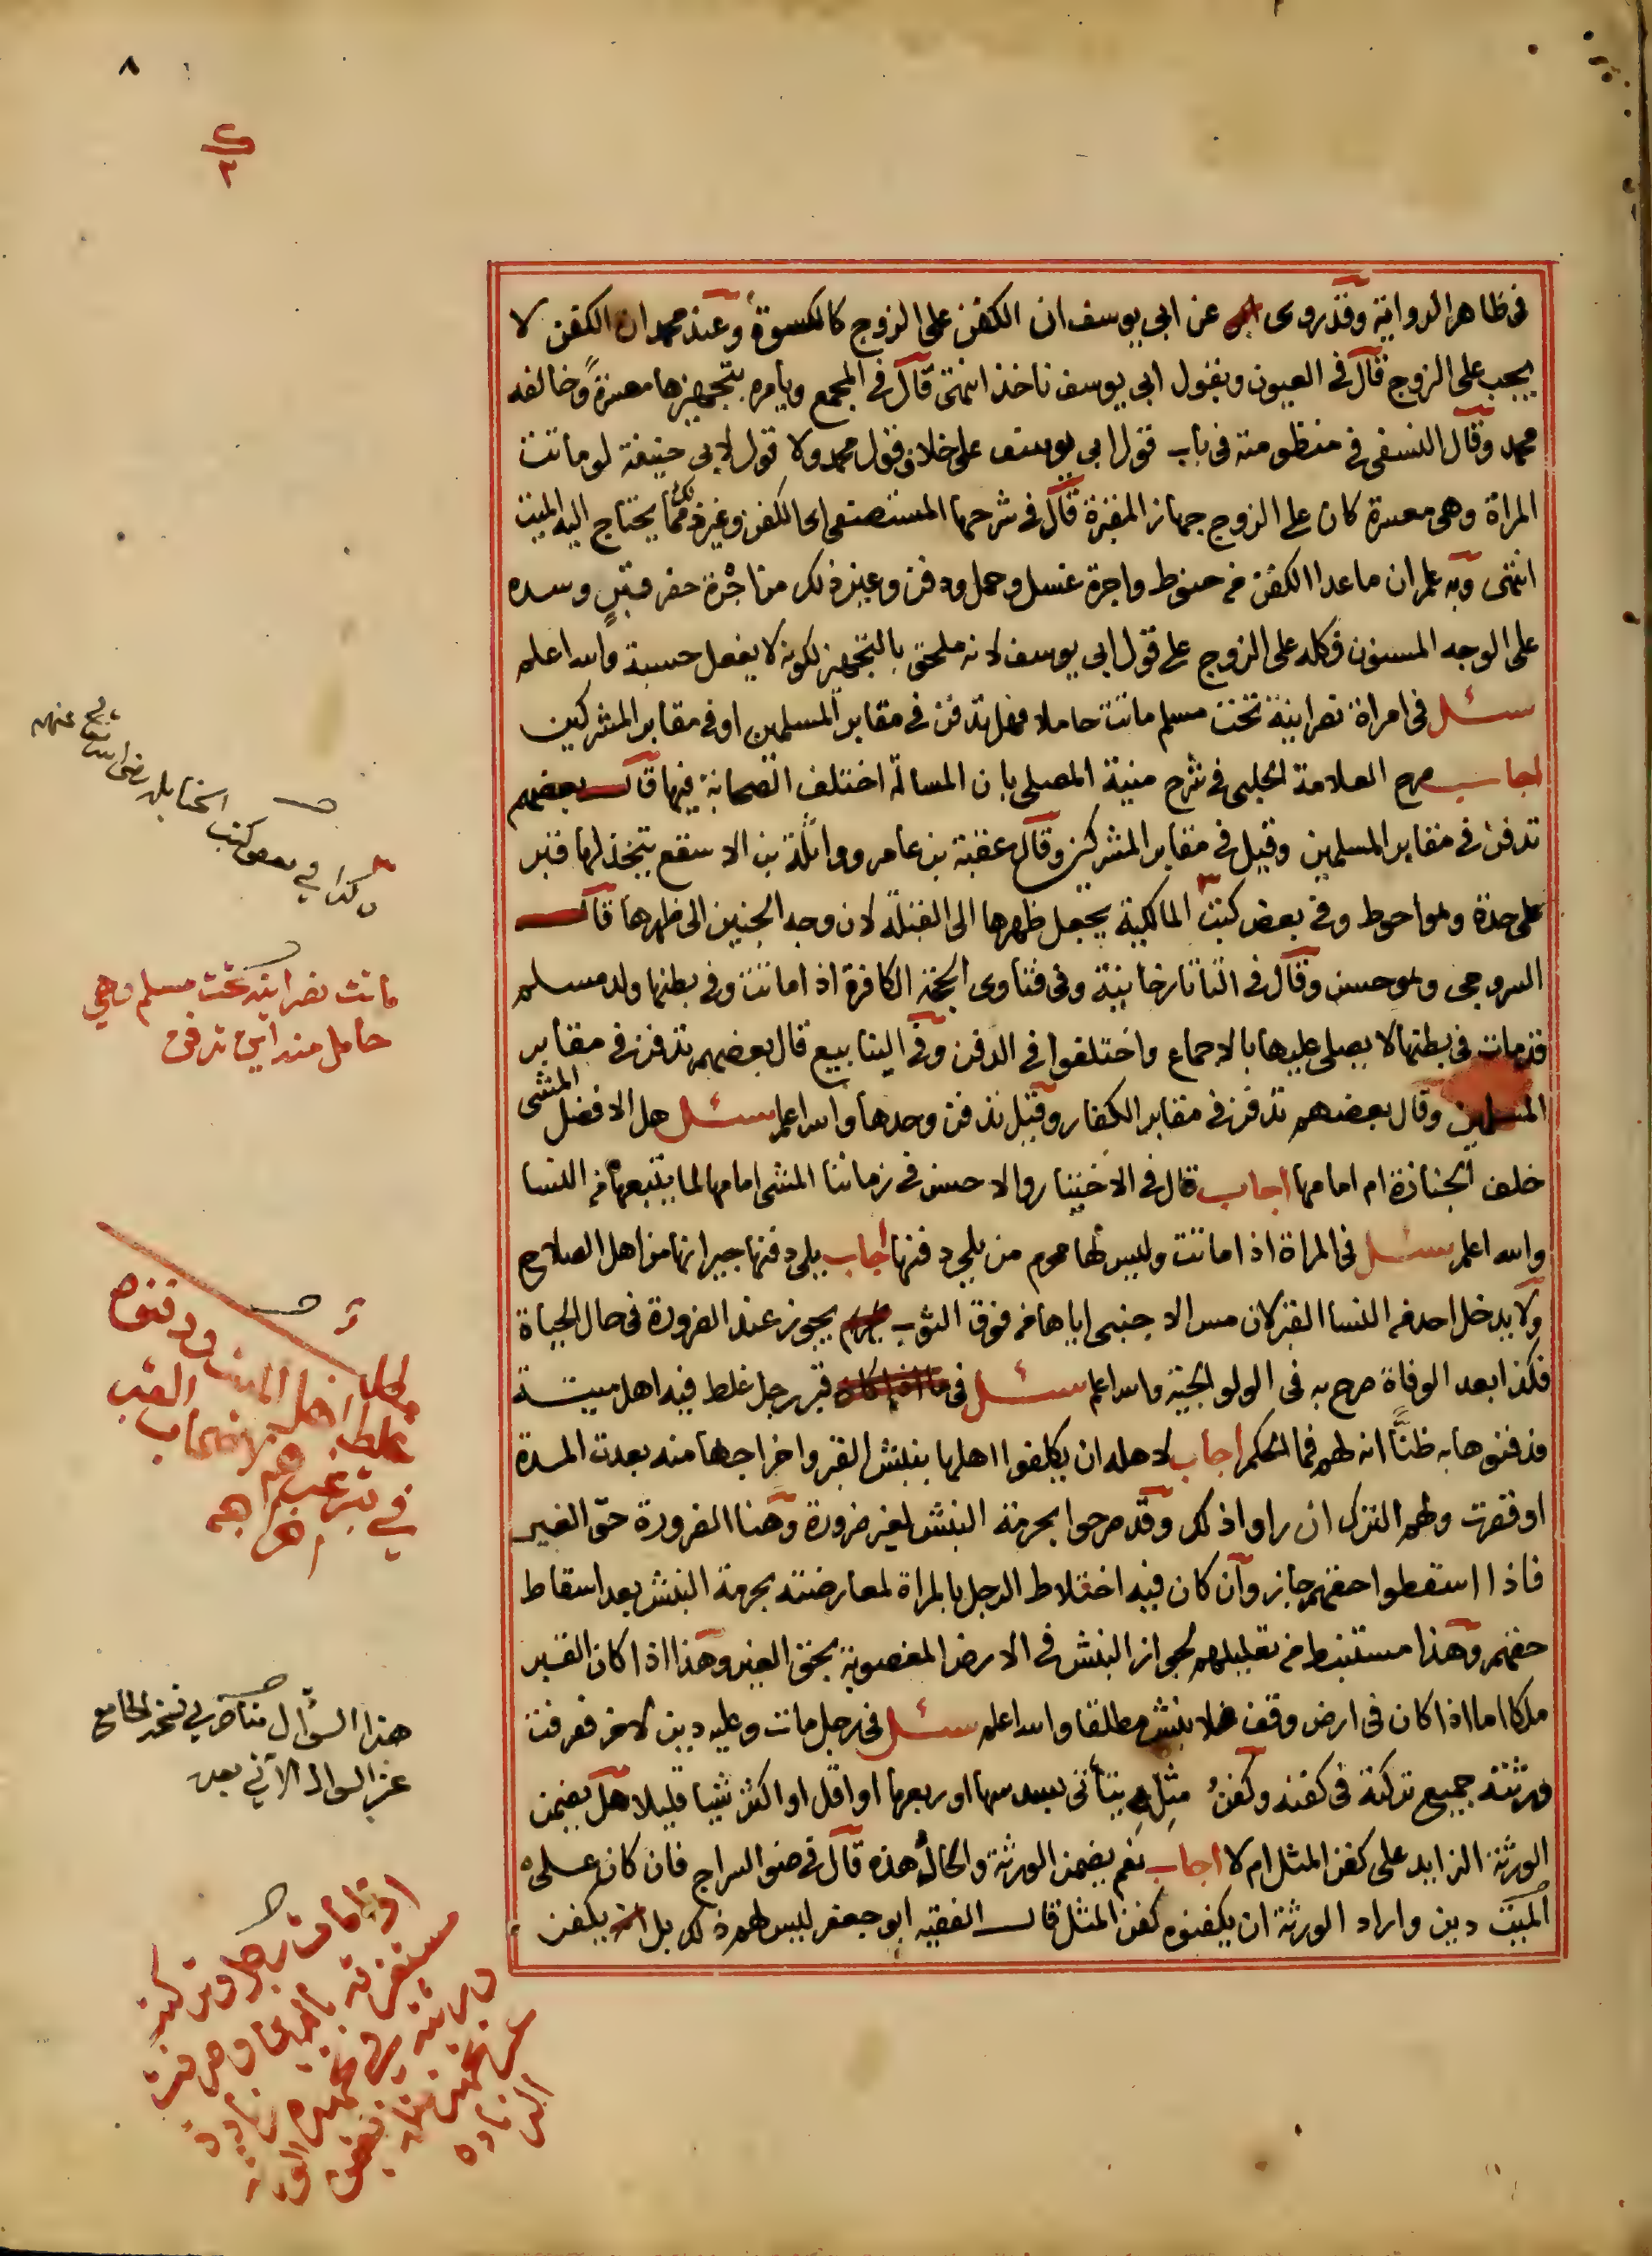 ٨
ك
٣
في ظاهر الرواية وقد روى عن ابي يوسف ان الكفن على الزوج كالكسوة وعند محمد ان الكفن لا
يجب على الزوج قال في العيون وبقول ابي يوسف ناخذ انتهى قال في المجمع ويامره بتجهيزها معسرة وخالفه
محمد وقال النسفي في منظومته في باب قول ابي يوسف على خلاف قول محمد ولا قول لابي حنيفة لو ماتت
المراة وهي معسرة كان على الزوج جهاز المقبرة قال في شرحها المستصفى اى الكفن وغير ذلك مما يحتاج اليه الميت
انتهى وبه علم ان ماعدا الكفن من حنوط واجرة غسل وحمل ودفن وغير ذلك من اجرة حفر قبر وسده
على الوجه المسنون فكله على الزوج على قول ابي يوسف لانه ملحق بالتجهيز لكونه لا يفعل حسبة والله اعلم
سئل في امراة نصرانية تحت مسلم ماتت حاملا فهل تدفن في مقابر المسلمين او في مقابر المشركين
اجاب صرح العلامة الحلبي في شرح منية المصلى بان المسالة اختلف الصحابة فيها قال بعضهم
تدفن في مقابر المسلمين وقيل في مقابر المشركين وقال عقبة بن عامر وواثلة بن الاسقع يتخذ لها قبر
على حدة وهو احوط وفي بعض كتب المالكية يجعل ظهرها الى القبلة لان وجه الجنين الى ظهرها قال
السروجي وهو حسن وقال في التاتارخانية وفي فتاوى الحجة الكافرة اذا ماتت وفي بطنها ولد مسلم
قد مات في بطنها لا يصلى عليها بالاجماع واختلفوا في الدفن وفي الينابيع قال بعضهم تدفن في مقابر
المسلمين وقال بعضهم تدفن في مقابر الكفار وقيل تدفن وحدها والله اعلم سئل هل الافضل المشى
خلف الجنازة ام امامها اجاب قال في الاختيار والاحسن في زماننا المشى امامها لما يتبعها من النسا
والله اعلم سئل في المراة اذا ماتت وليس لها محرم من يلي دفنها اجاب يلي دفنها جيرانها من اهل الصلاح
ولا يدخل احد من النسا القبر لان مس الاجنبي اياها من فوق الثوب يجوز عند الضرورة في حال الحياة
فكذا بعد الوفاة صرح به في الولوالجية والله اعلم سئل في قبر رجل غلط فيه اهل ميتة
فدفنوها به ظنا انه لهم فما الحكم اجاب لاهله ان يكلفوا اهلها بنبش القبر واخراجها منه بعدت المدة
او قصرت ولهم الترك ان راوا ذلك وقد صرحوا بحرمة النبش لغير ضرورة وهنا الضرورة حق الغير
فاذا اسقطوا حقهم جاز وان كان فيه اختلاط الرجل بالمراة لمعارضته بحرمة النبش بعد اسقاط
حقهم وهذا مستنبط من تعليلهم لجواز النبش في الارض المغصوبة بحق الغير وهذا اذا كان القبر
ملكا اما اذا كان في ارض وقف فلا ينبش مطلقا والله اعلم سئل في رجل مات وعليه دين لاخر فصرفت
ورثته جميع تركته في كفنه وكفن مثله يتأتى بسدسها او ربعها او اقل او اكثر شيا قليلا هل يضمن
الورثة الزايد على كفن المثل ام لا اجاب نعم يضمن الورثة والحال هذه قال في ضوء السراج فان كان على
الميت دين واراد الورثة ان يكفنوه كفن المثل قال الفقيه ابو جعفر ليس لهم ذلك بل يكفن
وكذا في بعض كتب الحنابلة رضي الله تع عنهم
ماتت نصرانية تحت مسلم وهي
حامل منه اين تدفن
غلط اهل الميت ودفنوه
في قبر غيرهم لاصحاب القبر
اخراجه
هذا السؤال متاخر في نسخة الجامع
عن السوال الآتي بعد
اذا مات رجل وتركته
مستغرقة بالدين وصرفت
ورثته في تجهيزه زيادة
عن تجهيز مثله تضمن الورثة
الزيادة